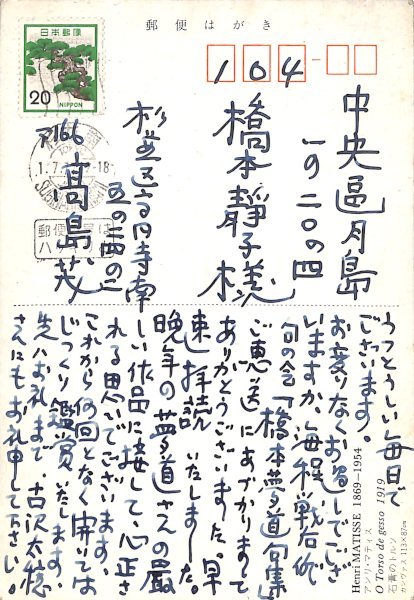 郵便はがき
日本郵便
20
NIPPON
104
中央區月島
一の二〇の四
橋本靜子様
杉並区高円寺南
五の二四の二
〒166
髙島茂
うつとうしい毎日で
ございます。
お変りなくお過しでござ
いますか、海程戦后俳
句の会「橋本夢道句集」
ご恵送にあづかりまして
ありがとうございました。早
速拝読いたしました。
晩年の夢道さんの嚴
しい作品に接して心正さ
れる思いでございます。
これから何回となく開いては
じっくり鑑賞いたします。
先ハお礼まで、古沢太穂
さんにもお礼申して下さい。
Henri MATISSE 1869–1954
アンリ・マティス
O Torso de gesso 1919
石膏のトルソ
カンヴァス 113×87cm